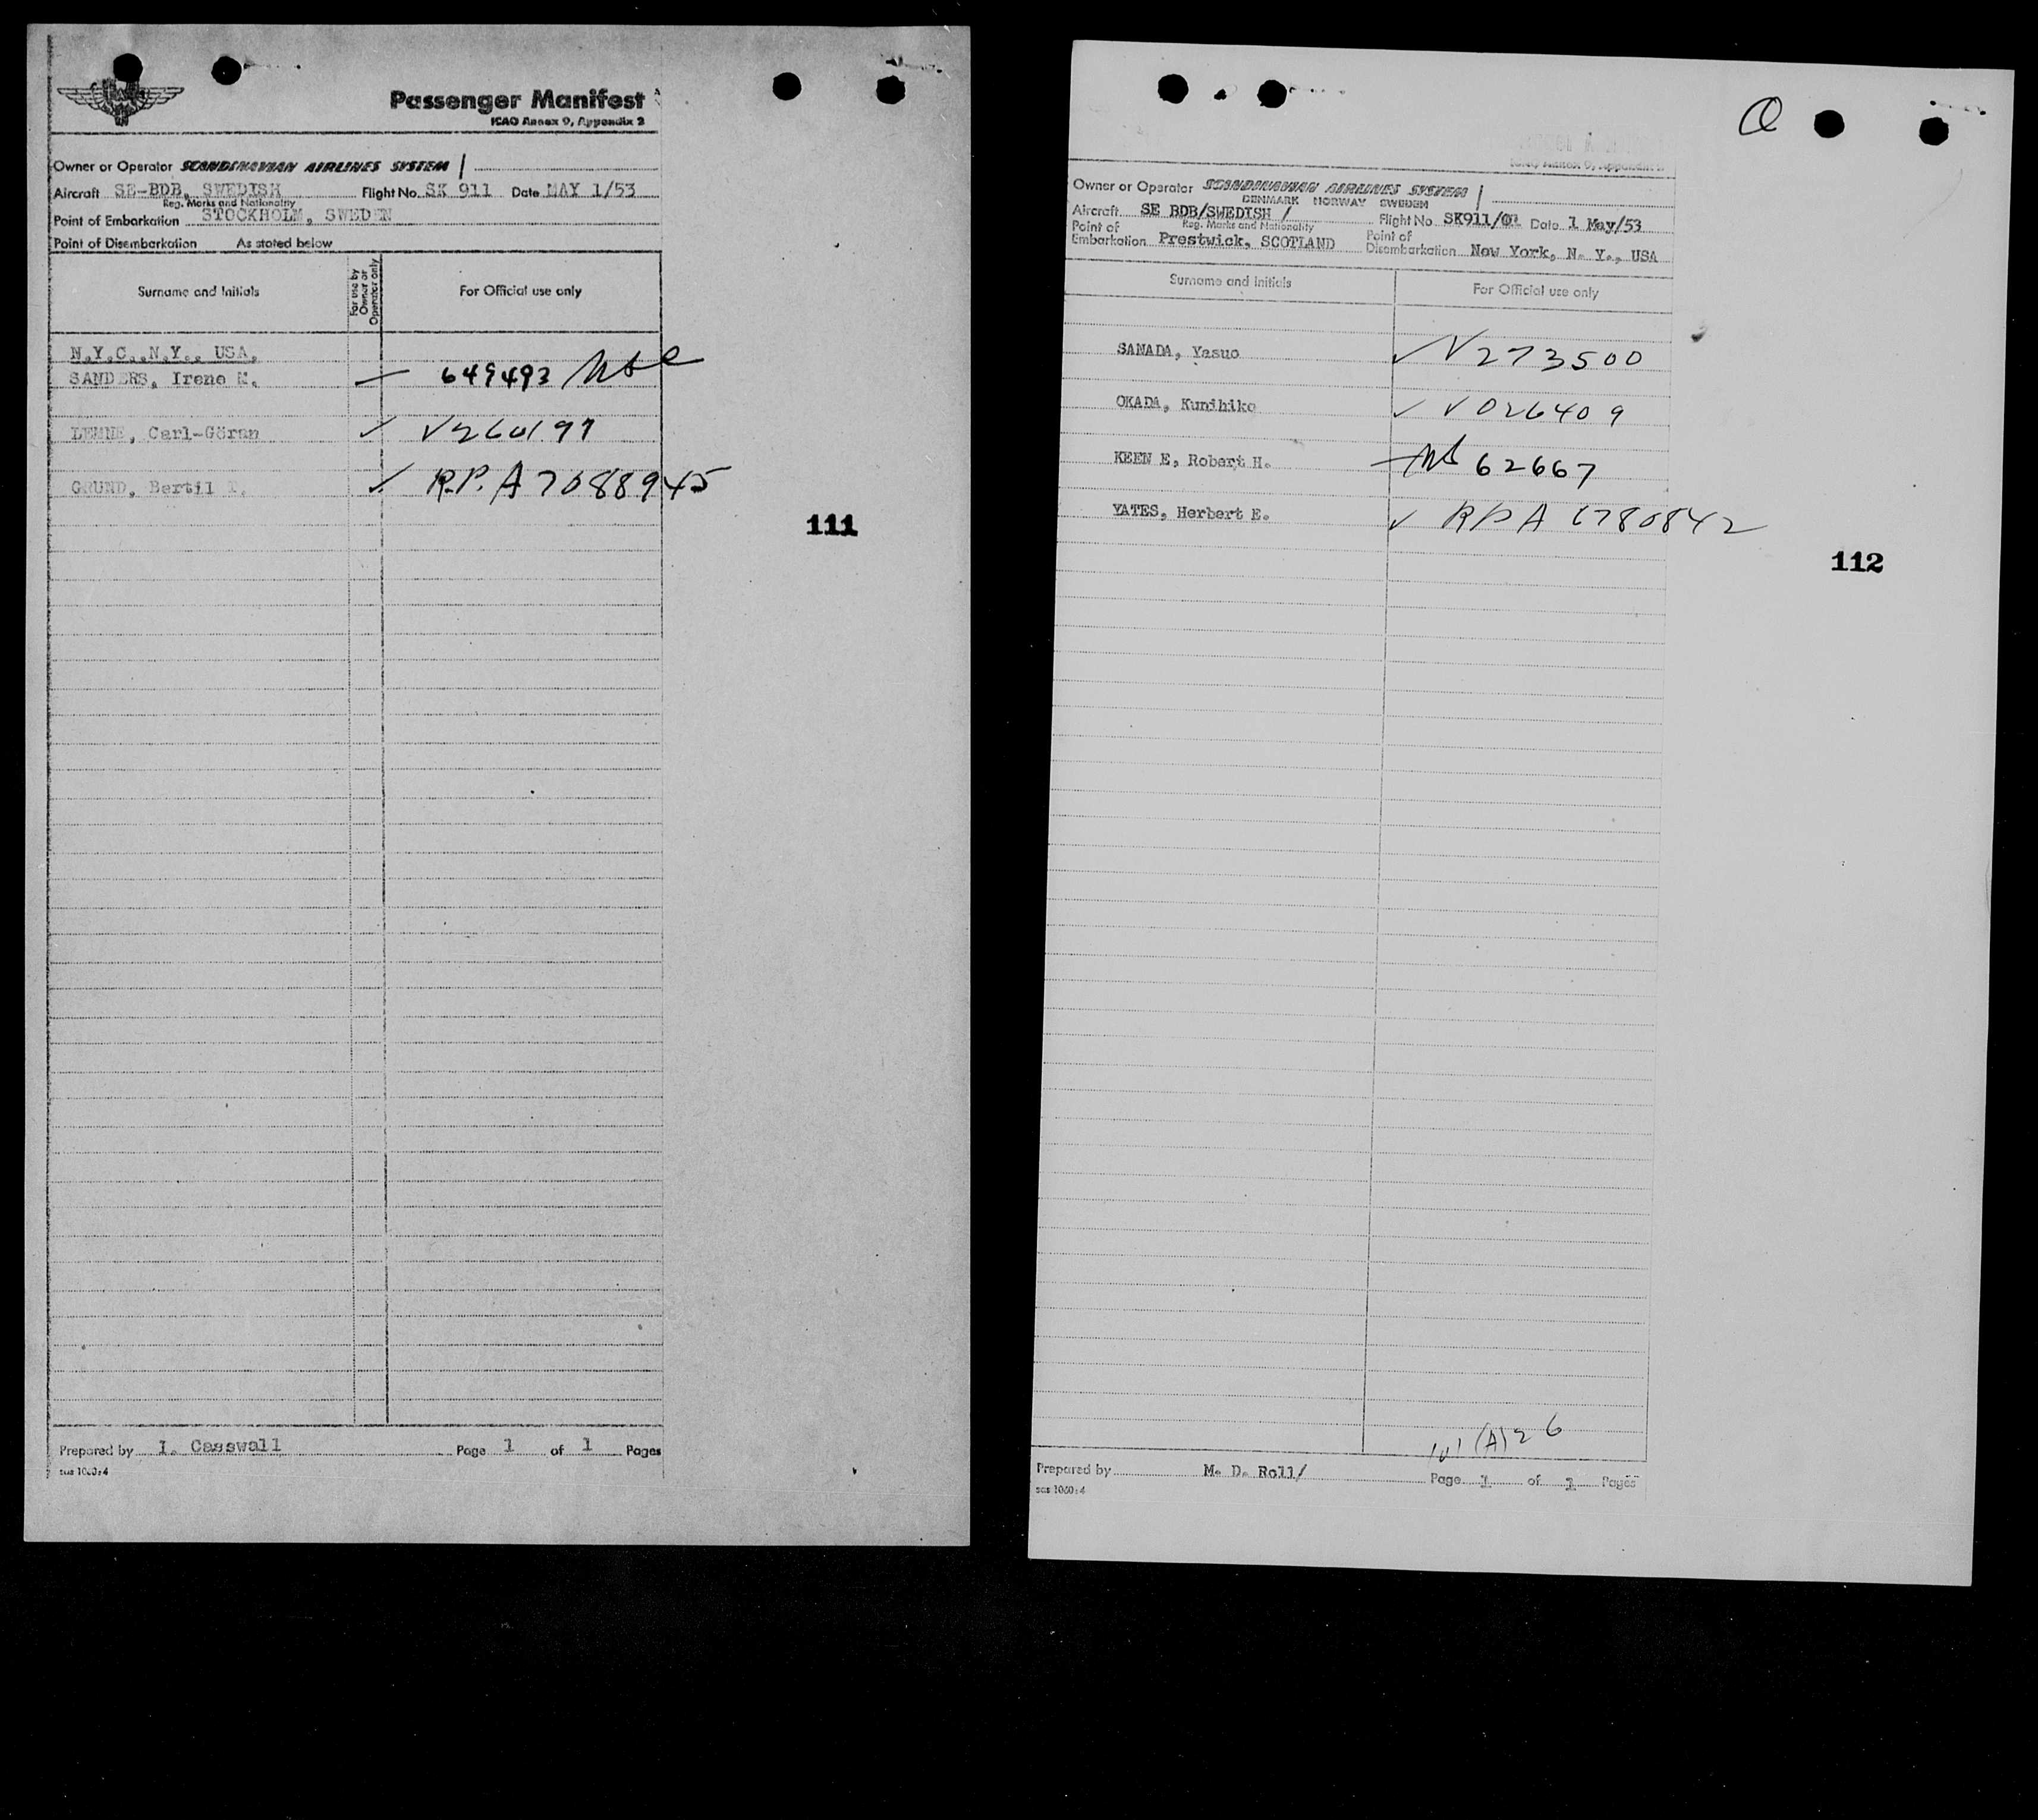 Passenger Manifest
ICAO Annex 9, Appendix 2
Owner or Operator SCANDINAVIAN AIRLINES SYSTEM
Aircraft SE-BDB, SWEDISH Flight No. SK 911 Date MAY 1/53
Reg. Marks and Nationality
Point of Embarkation STOCKHOLM, SWEDEN
Point of Disembarkation As stated below
Surname and Initials For use by Owner or Operator only For Official use only
N.Y.C., N.Y., USA.
SANDERS, Irene M. — 649493
Carl-Göran ✓ V260197
GRUND, Bertil ✓ R.P. A7088945
111
Prepared by I. Casswall Page 1 of 1 Pages
sas 1060:4
ICAO Annex 9, Appendix
Owner or Operator SCANDINAVIAN AIRLINES SYSTEM
DENMARK NORWAY SWEDEN
Aircraft SE BDB/SWEDISH / Flight No. SK911/01 Date 1 May/53
Reg. Marks and Nationality
Point of Embarkation Prestwick, SCOTLAND Point of Disembarkation New York, N. Y., USA
Surname and Initials For Official use only
SANADA, Yasuo ✓ V273500
OKADA, Kunihiko ✓ V026409
KEEN E, Robert H. 62667
YATES, Herbert E. ✓ RPA 6780842
112
(A) 26
Prepared by M. D. Roll/ Page 1 of 1 Pages
sas 1060:4